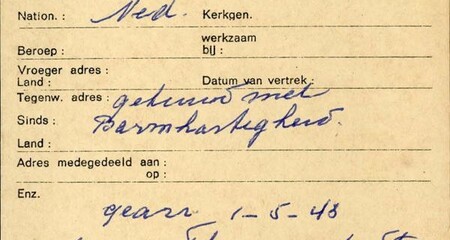 Nation. : Ned. Kerkgen.
werkzaam
Beroep : bij :
Vroeger adres :
Land : Datum van vertrek :
Tegenw. adres : gehuwd met
Sinds : Barmhartigheid.
Land :
Adres medegedeeld aan :
op :
Enz.
gearr 1-5-43